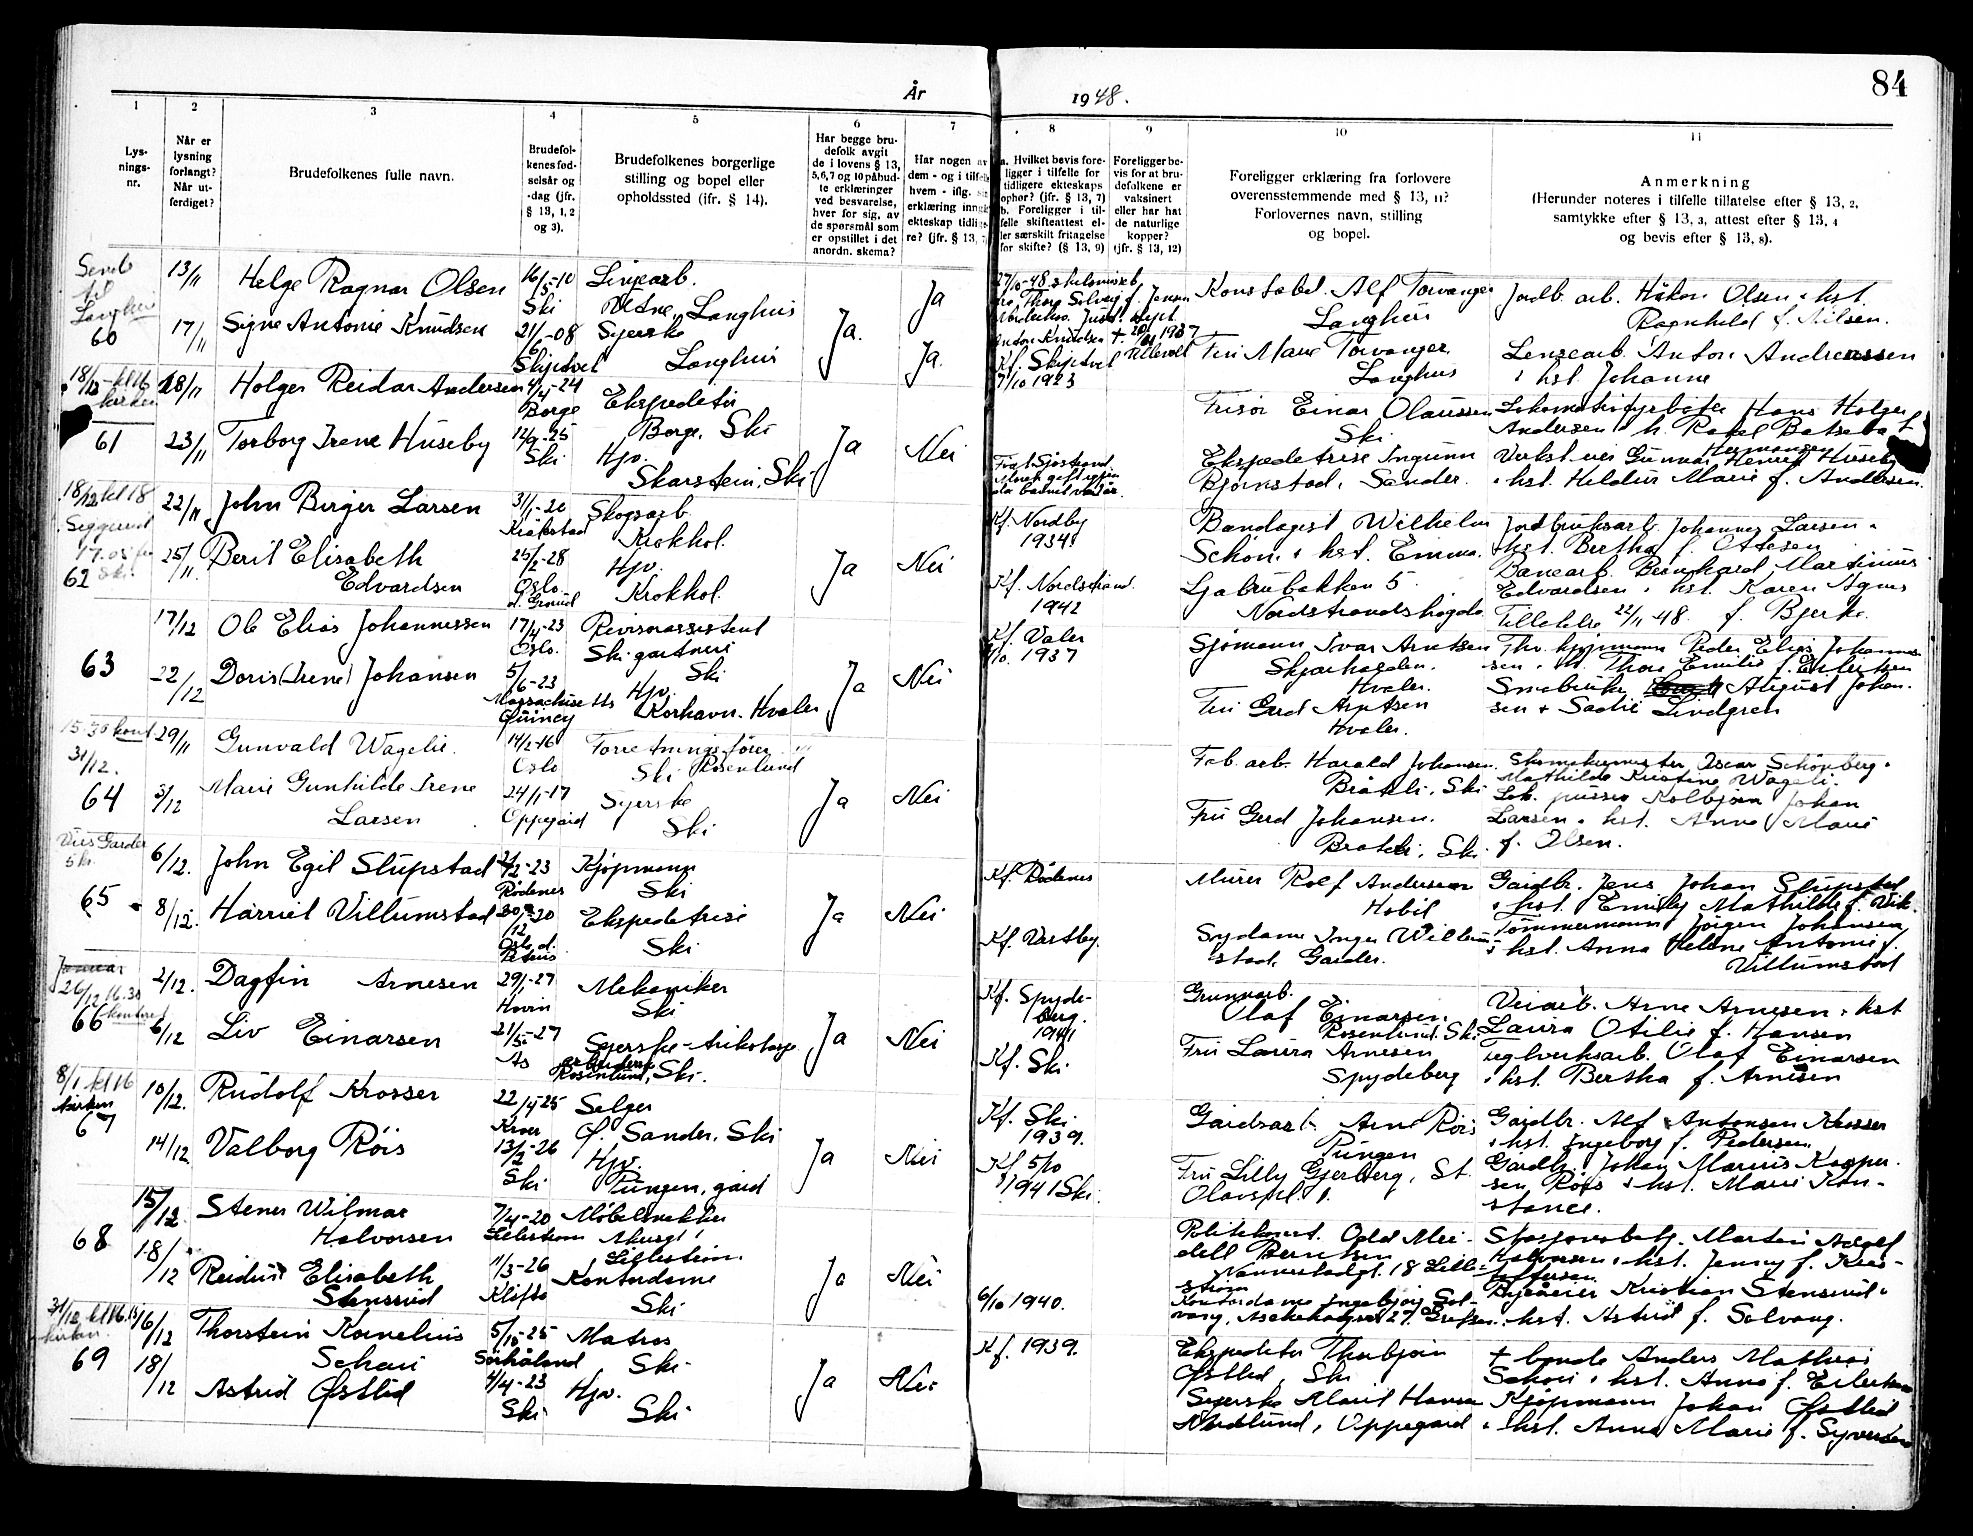 84
År 1948.
1 2 3 4 5 6 7 8 9 10 11
Lys-
nings-
nr.
Når er
lysning
forlangt?
Når ut-
ferdiget?
Brudefolkenes fulle navn.
Brudefol-
kenes fød-
selsår og
-dag (jfr.
§ 13, 1, 2
og 3).
Brudefolkenes borgerlige
stilling og bopel eller
opholdssted (ifr. § 14).
Har begge bru-
defolk avgit
de i lovens § 13,
5, 6, 7 og 10 påbud-
te erklæringer
ved besvarelse,
hver for sig, av
de spørsmål som
er opstillet i det
anordn. skema?
Har nogen av
dem - og i tilfelle
hvem - iflg.
erklæring
ekteskap tidli
re? (jfr. § 13,
a. Hvilket bevis fore-
ligger i tilfelle for
tidligere ekteskaps
ophør? (jfr. § 13, 7)
b. Foreligger i til-
felle skifteattest el-
ler særskilt fritagelse
for skifte? (§ 13, 9)
Foreligger be-
vis for at bru-
defolkene er
vaksinert
eller har hat
de naturlige
kopper?
(jfr. § 13, 12)
Foreligger erklæring fra forlovere
overensstemmende med § 13, 11?
Forlovernes navn, stilling
og bopel.
Anmerkning
(Herunder noteres i tilfelle tillatelse efter § 13, 2,
samtykke efter § 13, 3, attest efter § 13, 4
og bevis efter § 13, 8).
Send
til
Langhus
60
13/11 Helge Ragnar Olsen 16/5-10 Ski Linjearb. Langhus Ja
17/11 Signe Antonie Knudsen 21/6-08 Skjedvet Syerske Langhus Ja. Ja.
27/10-48 Solveig f. Jensen
Anton Knudsen + 1937 Ullevål
Kf. Skjedvet
7/10 1923
Konstabel. Alf Torvanger
Langhus
Fru Marie Torvanger
Langhus
Jordb. arb. Håkon Olsen & hst.
Ragnhild f. Nilsen.
Lensearb. Anton Andreassen
& hst. Johanne
18/12 - kl 16
kirken
61
18/11 Holger Reidar Andersen 4/4-24 Borge Ekspeditør Borge, Ski
23/11 Torborg Irene Huseby 12/9-25 Ski Hjv. Skarstein, Ski Ja Nei
Frisør Einar Olaussen
Ski
Ekspeditrise Ingunn
Bjørnstad, Sander.
Lokomotivfyrbøter Hans Holger
Andersen & h. Rakel Batseba f.
Hermansen
Verkst.eier Gunnar Henry Huseby
& hst. Heldur Marie f. Andersen.
18/12 kl 18
Siggerud
62
22/11 John Birger Larsen 31/1-20 Kråkstad Skogsarb. Krokhol.
25/11. Berit Elisabeth
Edvardsen 25/2-28 Oslo d. Grorud Hjv. Krokhol. Ja Nei
Kf. Nordby
1934.
Kf. Nordstrand.
1942
Bandagist Wilhelm
Schøn & hst. Emma.
Ljabrubakken 5.
Nordstrandshøgda
Jordbruksarb. Johannes Larsen &
hst. Bertha f. Ottesen
Banearb. Bernhard Martinius
Edvardsen & hst. Karen Agnes
f. Bjerke.
Tillatelse 22/11 48.
63
17/12 Ole Elias Johannessen 17/4-23 Oslo. Revisorassistent Ski gartneri Ski
22/12 Doris (Irene) Johansen 5/6-23 Massachusetts Quincy Hjv. Korshavn. Hvaler Ja Nei
Kf. Våler
1937
Sjømann Ivar Arntsen
Skjærhalden.
Hvaler.
Fru Gerd Arntsen
Hvaler.
Fhv. kjøpmann Peder Elias Johannes-
sen & h. Thora Emilie f. Enlertsen
Småbruker August Johan-
sen & Sadie Lindgren
15.30 kont
31/12.
64
29/11 Gunvald Wagelie. 14/2-16 Oslo Forretningsfører Ski Rosenlund
3/12 Marie Gunhilde Irene
Larsen 24/1-17 Oppegård Syerske Ski Ja Nei
Fab. arb. Harald Johansen.
Bråtli, Ski
Fru Gerd Johansen.
Bråtli, Ski
Skomakermester Oscar Schönberg &
Mathilde Kristine Wageli.
Lok. pusser Kolbjørn Johan
Larsen & hst. Anna Marie
f. Olsen.
Vies Garder
65
6/12. John Egil Slupstad 2/2-23 Rødenes Kjøpmann Ski
8/12. Harriet Villumstad 30/12-20 Oslo, d. Petrus Ekspeditrise Ski Ja Nei
Kf. Rødenes
Kf. Vestby.
Murer Rolf Andersen
Hobøl
Sydame Inger Willum-
stad. Garder.
Gårdbr. Jens Johan Slupstad
& hst. Emily Mathilde f. Vik.
Tømmermann Jørgen Johansen
& hst. Anna Helene Antonie f.
Villumstad
Januar
26/12 16.30
kontoret
66
2/12. Dagfin Arnesen 29/1-27 Hovin Mekaniker Ski
6/12 Liv Einarsen 21/5-27 Ås Syerske-trikotasje
arbeiderske Rosenlund, Ski. Ja Nei
Kf. Spyde-
berg.
1941
Kf. Ski.
Grunnarb.
Olaf Einarsen
Rosenlund. Ski
Fru Laura Arnesen
Spydeberg
Veiarb. Arne Arnesen & hst
Laura Otilie f. Hansen
Teglverksarb. Olaf Einarsen
& hst. Bertha f. Arnesen
8/1 kl 16
kirken
67
10/12. Rudolf Krosser 22/4-25 Kroer Selger Ø. Sander, Ski
14/12. Valborg Røis 13/2-26 Ski Hjv. Pungen, gård Ja Nei
Kf. Ski
1939.
Kf 5/10
1941 Ski.
Gårdsarb. Arne Røis
Pungen
Fru Lilly Gjerberg, St.
Olavspl. 1.
Gårdbr. Alf Antonsen Krosser
& hst. Ingeborg f. Pedersen
Gårdbr. Johan Marius Kasper-
sen Røis & hst. Marie Kon-
stance.
68
15/12. Stener Wilmar
Halvorsen 7/4-20 Lillestrøm Møbelsnekker Lillestrøm
18/12 Reidun Elisabeth
Stensrud 11/3-26 Kløfta Kontordame Ski Ja Nei
6/10 1940.
Politikonst. Odd Mei-
dell Berntsen
Nannestadgt. 18 Lille-
strøm
Kontordame Ingebjørg Sol-
vang, 27. Grefsen
Stasjonsbetj. Martin Adolf
Halvorsen & hst. Jenny f. Kris-
toffersen
Byråeier Kristian Stensrud &
hst. Astrid f. Solvang.
31/12 kl 16.15
kirken
69
16/12 Thorstein Kornelius
Schau 5/10-25 Sørhåland Matros Ski
18/12 Astrid Østlid 4/4-23 Ski Hjv. Ski Ja Nei
Kf. 1939.
Ekspeditør Thorbjørn
Østlid, Ski
Syerske Marit Hansen
Nordlund, Oppegård
+ bonde Anders Mathias
Schou & hst. Anna f. Eilertsen
Kjøpmann Johan Østlid
& hst. Anna Marie f. Syversen